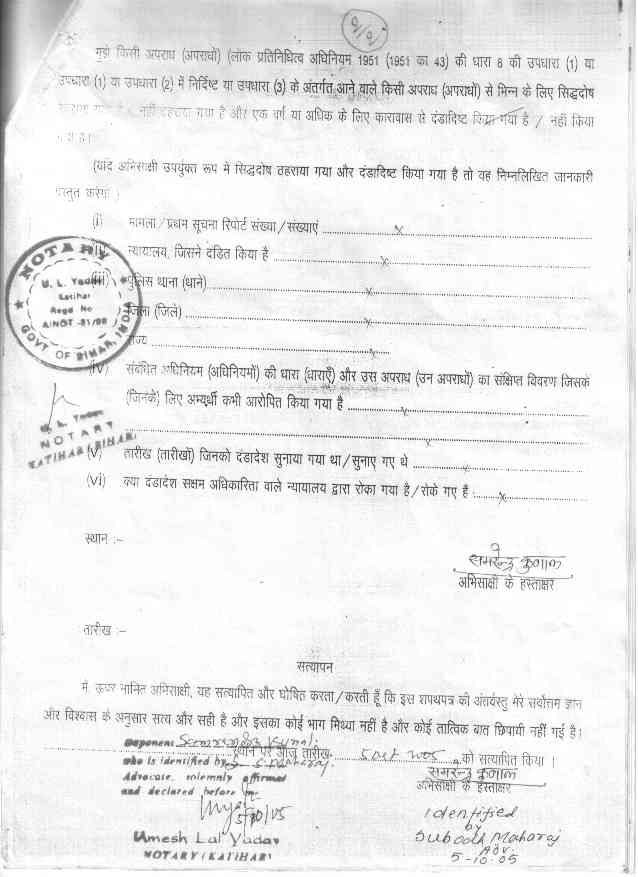 मुझे किसी अपराध (अपराधों) (लोक प्रतिनिधित्व अधिनियम 1951 (1951 का 43) की धारा 8 की उपधारा (1) या
उपधारा (1) या उपधारा (2) में निर्दिष्ट या उपधारा (3) के अंतर्गत आने वाले किसी अपराध (अपराधों) से भिन्न के लिए सिद्धदोष
नहीं ठहराया गया है और एक वर्ष या अधिक के लिए कारावास से दंडादिष्ट किया गया है / नहीं किया
(यदि अभिसाक्षी उपर्युक्त रूप में सिद्धदोष ठहराया गया और दंडादिष्ट किया गया है तो वह निम्नलिखित जानकारी
प्रस्तुत करेगा )
(i) मामला/प्रथम सूचना रिपोर्ट संख्या/संख्याएं ........ x
न्यायालय, जिसने दंडित किया है ........ x
(iii) पुलिस थाना (थाने) ........ x
जिला (जिले) ........ x
राज्य ........ x
(iv) संबंधित अधिनियम (अधिनियमों) की धारा (धाराएँ) और उस अपराध (उन अपराधों) का संक्षिप्त विवरण जिसके
(जिनके) लिए अभ्यर्थी कभी आरोपित किया गया है ........ x
........ x
(v) तारीख (तारीखों) जिनको दंडादेश सुनाया गया था/सुनाए गए थे ........ x
(vi) क्या दंडादेश सक्षम अधिकारिता वाले न्यायालय द्वारा रोका गया है/रोके गए है ........ x
NOTARY
U. L. Yadav
Katihar
Regd. No
GOVT OF BIHAR
U. L. Yadav
NOTARY
KATIHAR (BIHAR)
स्थान :-
समरेन्द्र कुणाल
अभिसाक्षी के हस्ताक्षर
तारीख :-
सत्यापन
में ऊपर नामित अभिसाक्षी, यह सत्यापित और घोषित करता/करती हूँ कि इस शपथपत्र की अंतर्वस्तु मेरे सर्वोत्तम ज्ञान
और विश्वास के अनुसार सत्य और सही है और इसका कोई भाग मिथ्या नहीं है और कोई तात्विक बात छिपायी नहीं गई है।
Deponent Samrendra Kunal
स्थान पर आज तारीख ........ 5 oct 2005 को सत्यापित किया ।
who is identified by S. Maharaj
समरेन्द्र कुणाल
Advocate, solemnly affirmed
अभिसाक्षी के हस्ताक्षर
and declared before me
5/10/05
Umesh Lal Yadav
NOTARY (KATIHAR)
Identified
by
Subodh Maharaj
Adv.
5-10-05